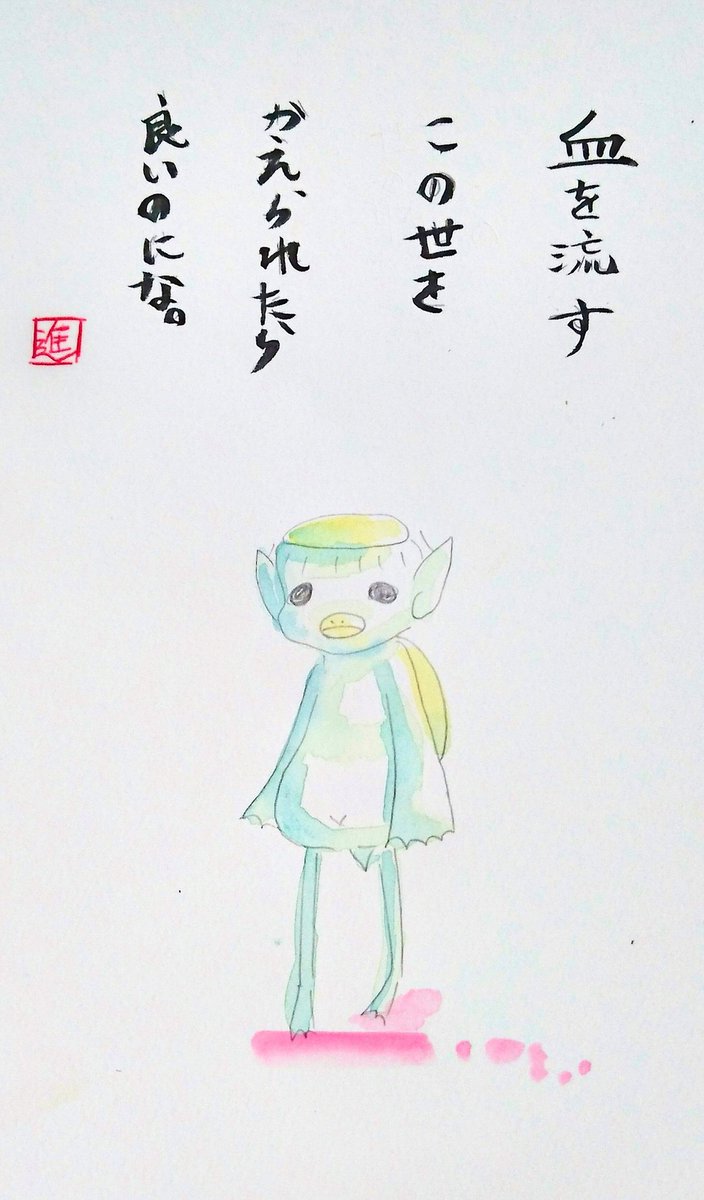 血を流す
この世を
かえられたら
良いのにな。
進